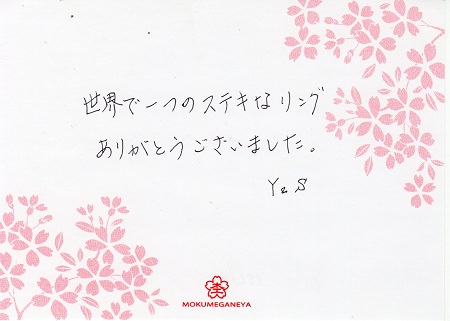 世界で一つのステキなリング
ありがとうございました。
Y&S
MOKUMEGANEYA